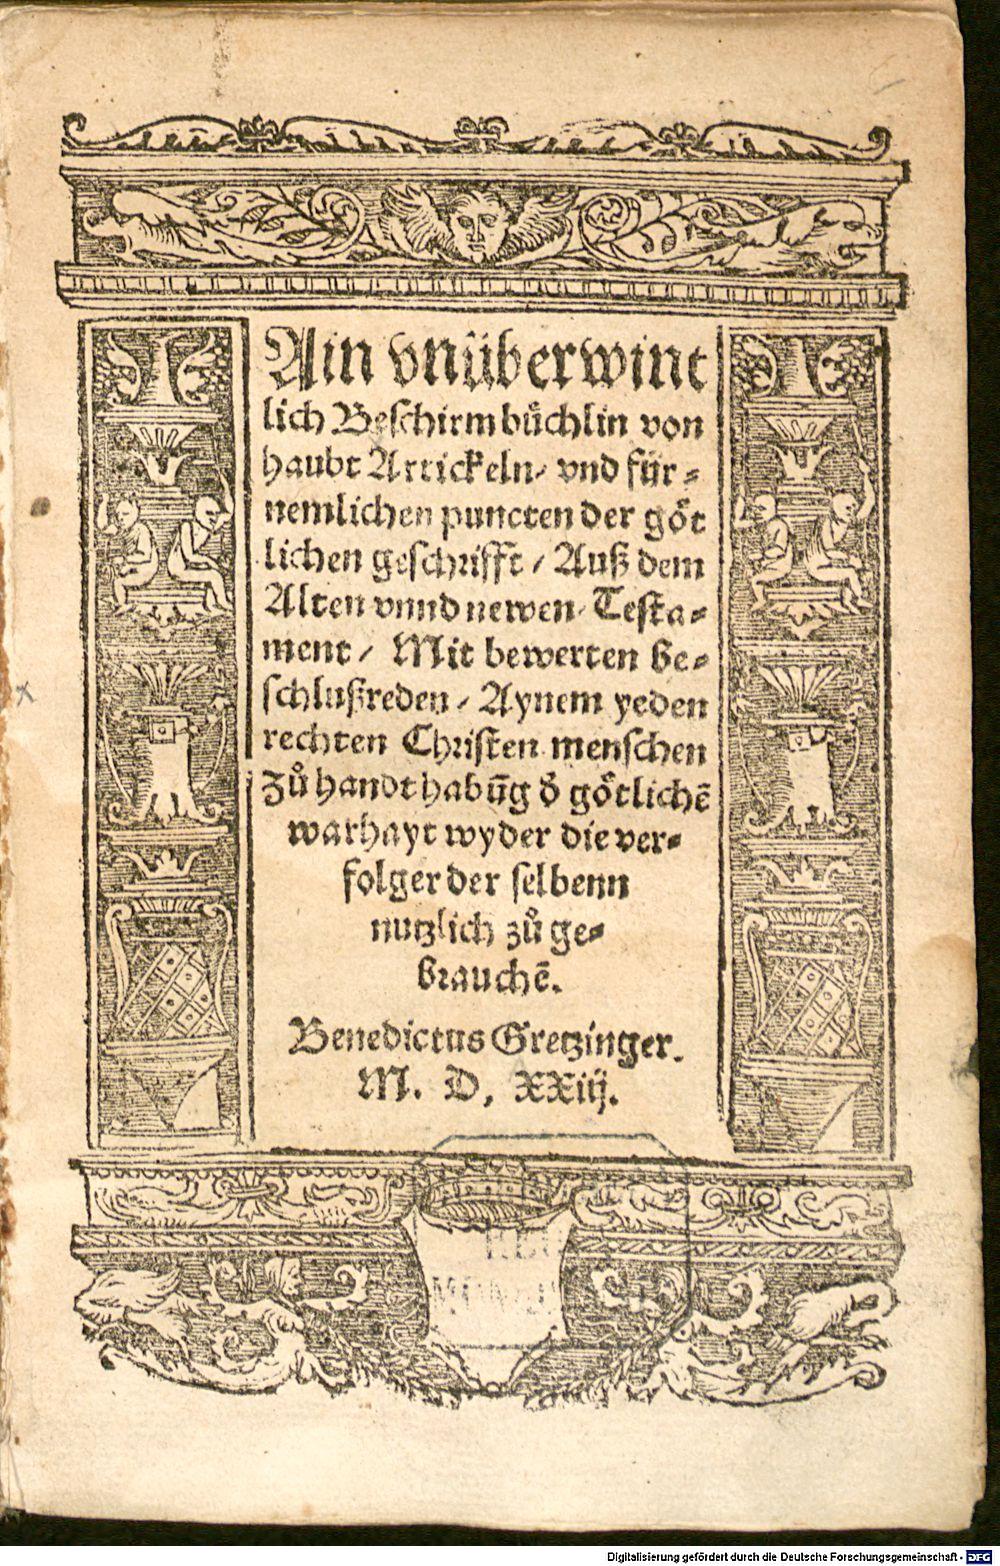 Ain vnüberwint
lich Beſchirmbuͤchlin von
haubt Artickeln/ vnd für⸗
nemlichen puncten der goͤt
lichen geſchrifft / Auß dem
Alten vnnd newen Teſta⸗
ment / Mit bewerten be⸗
ſchlußreden / Aynem yeden
rechten Chriſten menſchen
zuͦ handthabūg d̄ goͤtlichē
warhayt wyder die ver⸗
folger der ſelbenn
nutzlich zuͦ ge⸗
brauchē.
Benedictus Gretzinger.
M. D, XXiij.
Digitalisierung gefördert durch die Deutsche Forschungsgemeinschaft - DFG